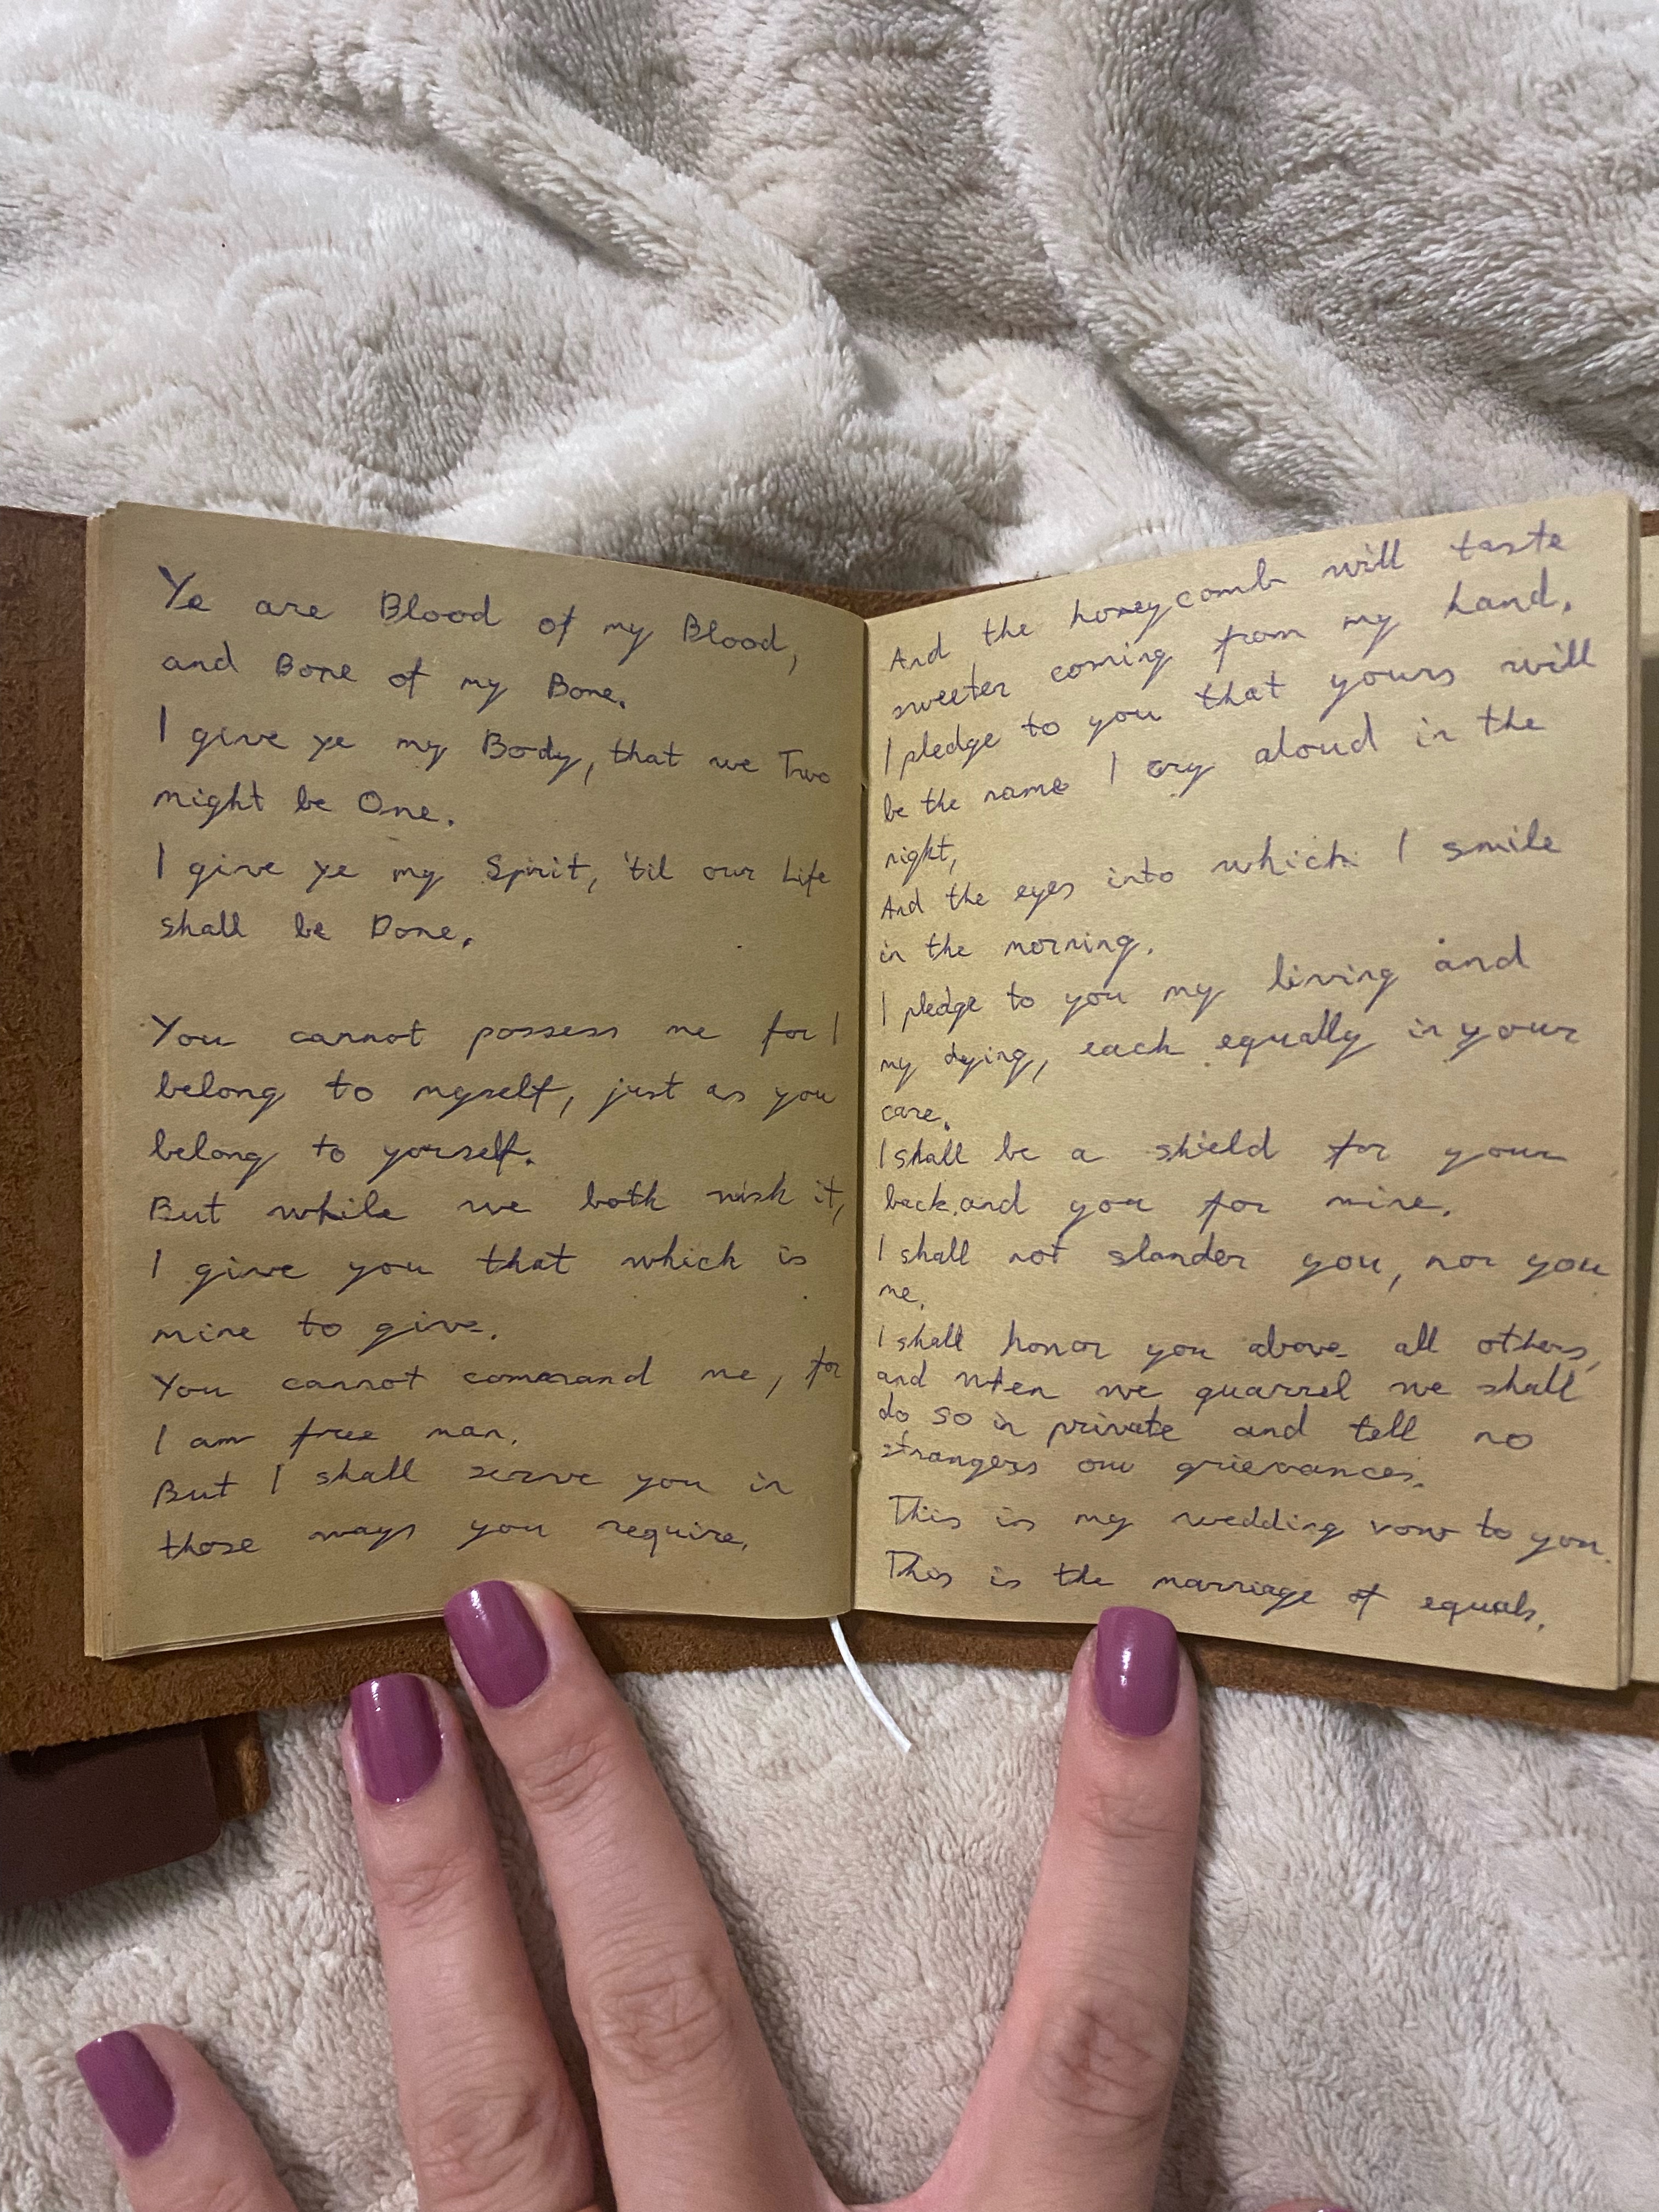 Ye are Blood of my Blood,
and Bone of my Bone.
I give ye my Body, that we Two
might be One.
I give ye my Spirit, 'til our Life
shall be Done.
You cannot possess me for I
belong to myself, just as you
belong to yorself.
But while we both wish it,
I give you that which is
mine to give.
You cannot command me, for
I am free man.
But I shall serve you in
those ways you require.
And the honeycomb will taste
sweeter coming from my hand.
I pledge to you that yours will
be the name I cry aloud in the
night,
And the eyes into which I smile
in the morning.
I pledge to you my living and
my dying, each equally in your
care.
I shall be a shield for your
back, and you for mine.
I shall not slander you, nor you
me.
I shall honor you above all others,
and when we quarrel we shall
do so in private and tell no
strangers our grievances.
This is my wedding vow to you.
This is the marriage of equals.